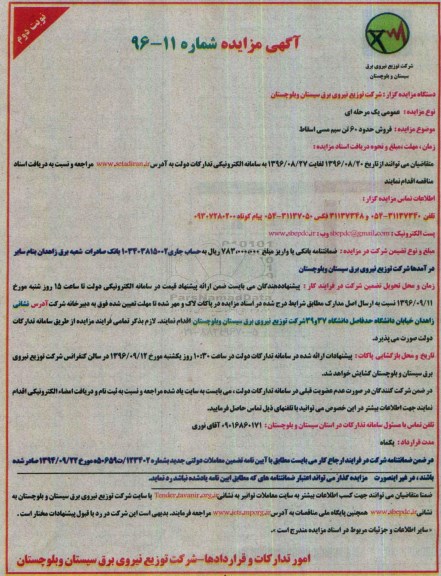 نوبت دوم
آگهی مزایده شماره ۱۱-۹۶
شرکت توزیع نیروی برق
سیستان و بلوچستان
دستگاه مزایده گزار: شرکت توزیع نیروی برق سیستان وبلوچستان
نوع مزایده: عمومی یک مرحله ای
موضوع مزایده: فروش حدود ۶۰ تن سیم مسی اسقاط
زمان، مهلت،مبلغ و نحوه دریافت اسناد مزایده:
متقاضیان می توانند ازتاریخ ۱۳۹۶/۰۸/۲۰ لغایت ۱۳۹۶/۰۸/۲۷ به سامانه الکترونیکی تدارکات دولت به آدرس www.setadiran.ir مراجعه و نسبت به دریافت اسناد
مناقصه اقدام نمایند
اطلاعات تماس مزایده گزار:
تلفن ۳۱۱۳۷۳۲۰-۰۵۴ و ۳۱۱۳۷۳۲۸ فکس ۳۱۱۳۷۰۵۰-۰۵۴ پیام کوتاه ۰۹۳۰۷۲۸۰۲۰۰
پست الکترونیک: sbepdc@gmail.com وب: www.sbepdc.ir
مبلغ و نوع تضمین شرکت در مزایده: ضمانتنامه بانکی یا واریز مبلغ ریال به حساب جاری ۰۱۰۳۳۰۳۸۱۵۰۰۲ بانک صادرات شعبه برق زاهدان بنام سایر
در آمدها شرکت توزیع نیروی برق سیستان وبلوچستان
زمان و محل تحویل تضمین شرکت در فرایند کار: پیشنهاددهندگان می بایست ضمن ارائه پیشنهاد قیمت در سامانه الکترونیکی دولت تا ساعت ۱۵ روز شنبه مورخ
۱۳۹۶/۰۹/۱۱ نسبت به ارسال اصل مدارک مطابق شرایط درج شده در اسناد مزایده در پاکات لاک و مهر شده تا مهلت تعیین شده فوق به دبیرخانه شرکت آدرس نشانی
زاهدان خیابان دانشگاه حدفاصل دانشگاه ۳۷و۳۹ شرکت توزیع نیروی برق سیستان وبلوچستان اقدام نمایند. لازم بذکر تمامی فرایند مزایده از طریق سامانه تدارکات
دولت صورت می پذیرد.
تاریخ و محل بازگشایی پاکات: پیشنهادات ارائه شده در سامانه تدارکات دولت در ساعت ۱۰:۳۰ روز یکشنبه مورخ ۱۳۹۶/۰۹/۱۲ در سالن کنفرانس شرکت توزیع نیروی
برق سیستان و بلوچستان گشایش خواهد شد.
در ضمن شرکت کنندگان در صورت عدم عضویت قبلی در سامانه تدارکات دولت، می بایست به سایت یاد شده مراجعه و نسبت به ثبت نام و دریافت امضاء الکترونیکی اقدام
نمایند جهت اطلاعات بیشتر در این خصوص می توانید با تلفنهای ذیل تماس حاصل فرمایید.
تلفن تماس با مسئول سامانه تدارکات در استان سیستان و بلوچستان: ۰۹۰۱۶۸۶۰۱۷۱ آقای نوری
مدت قرارداد: یکماه
در ضمن ضمانتنامه شرکت در فرایند ارجاع کار می بایست مطابق با آیین نامه تضمین معاملات دولتی جدید بشماره ۱۲۳۴۰۲/ت۵۰۶۵۹ه مورخ ۱۳۹۴/۰۹/۲۲ صادر شده
باشند، در غیر اینصورت مزایده گذار می تواند اعتبار ضمانتنامه های که مطابق این آیین نامه یادشده نباشد رد نماید.
ضمنا متقاضیان می توانند جهت کسب اطلاعات بیشتر به سایت معاملات توانیر به نشانی: Tender.tavanir.org.ir یا سایت شرکت توزیع نیروی برق سیستان و بلوچستان به
نشانی www.sbepdc.ir همچنین پایگاه ملی مناقصات به آدرس www.iets.mporg.ir مراجعه فرمایند. بدیهی است این شرکت در رد یا قبول پیشنهادات مختار است.
«سایر اطلاعات و جزئیات مربوط در اسناد مزایده مندرج است»
امور تدارکات و قراردادها-شرکت توزیع نیروی برق سیستان وبلوچستان